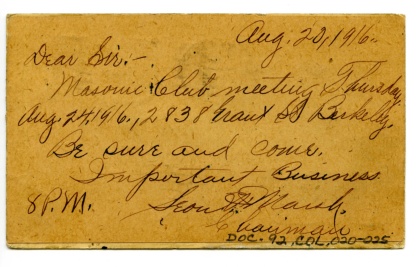 Aug. 20, 1916.
Dear Sir:-
Masonic Club meeting Thursday,
Aug. 24, 1916, 2838 Grant St Berkeley.
Be sure and come.
Important Business
8 P.M. Leon H. Marsh,
Chairman
DOC. 92, COL, 020-225